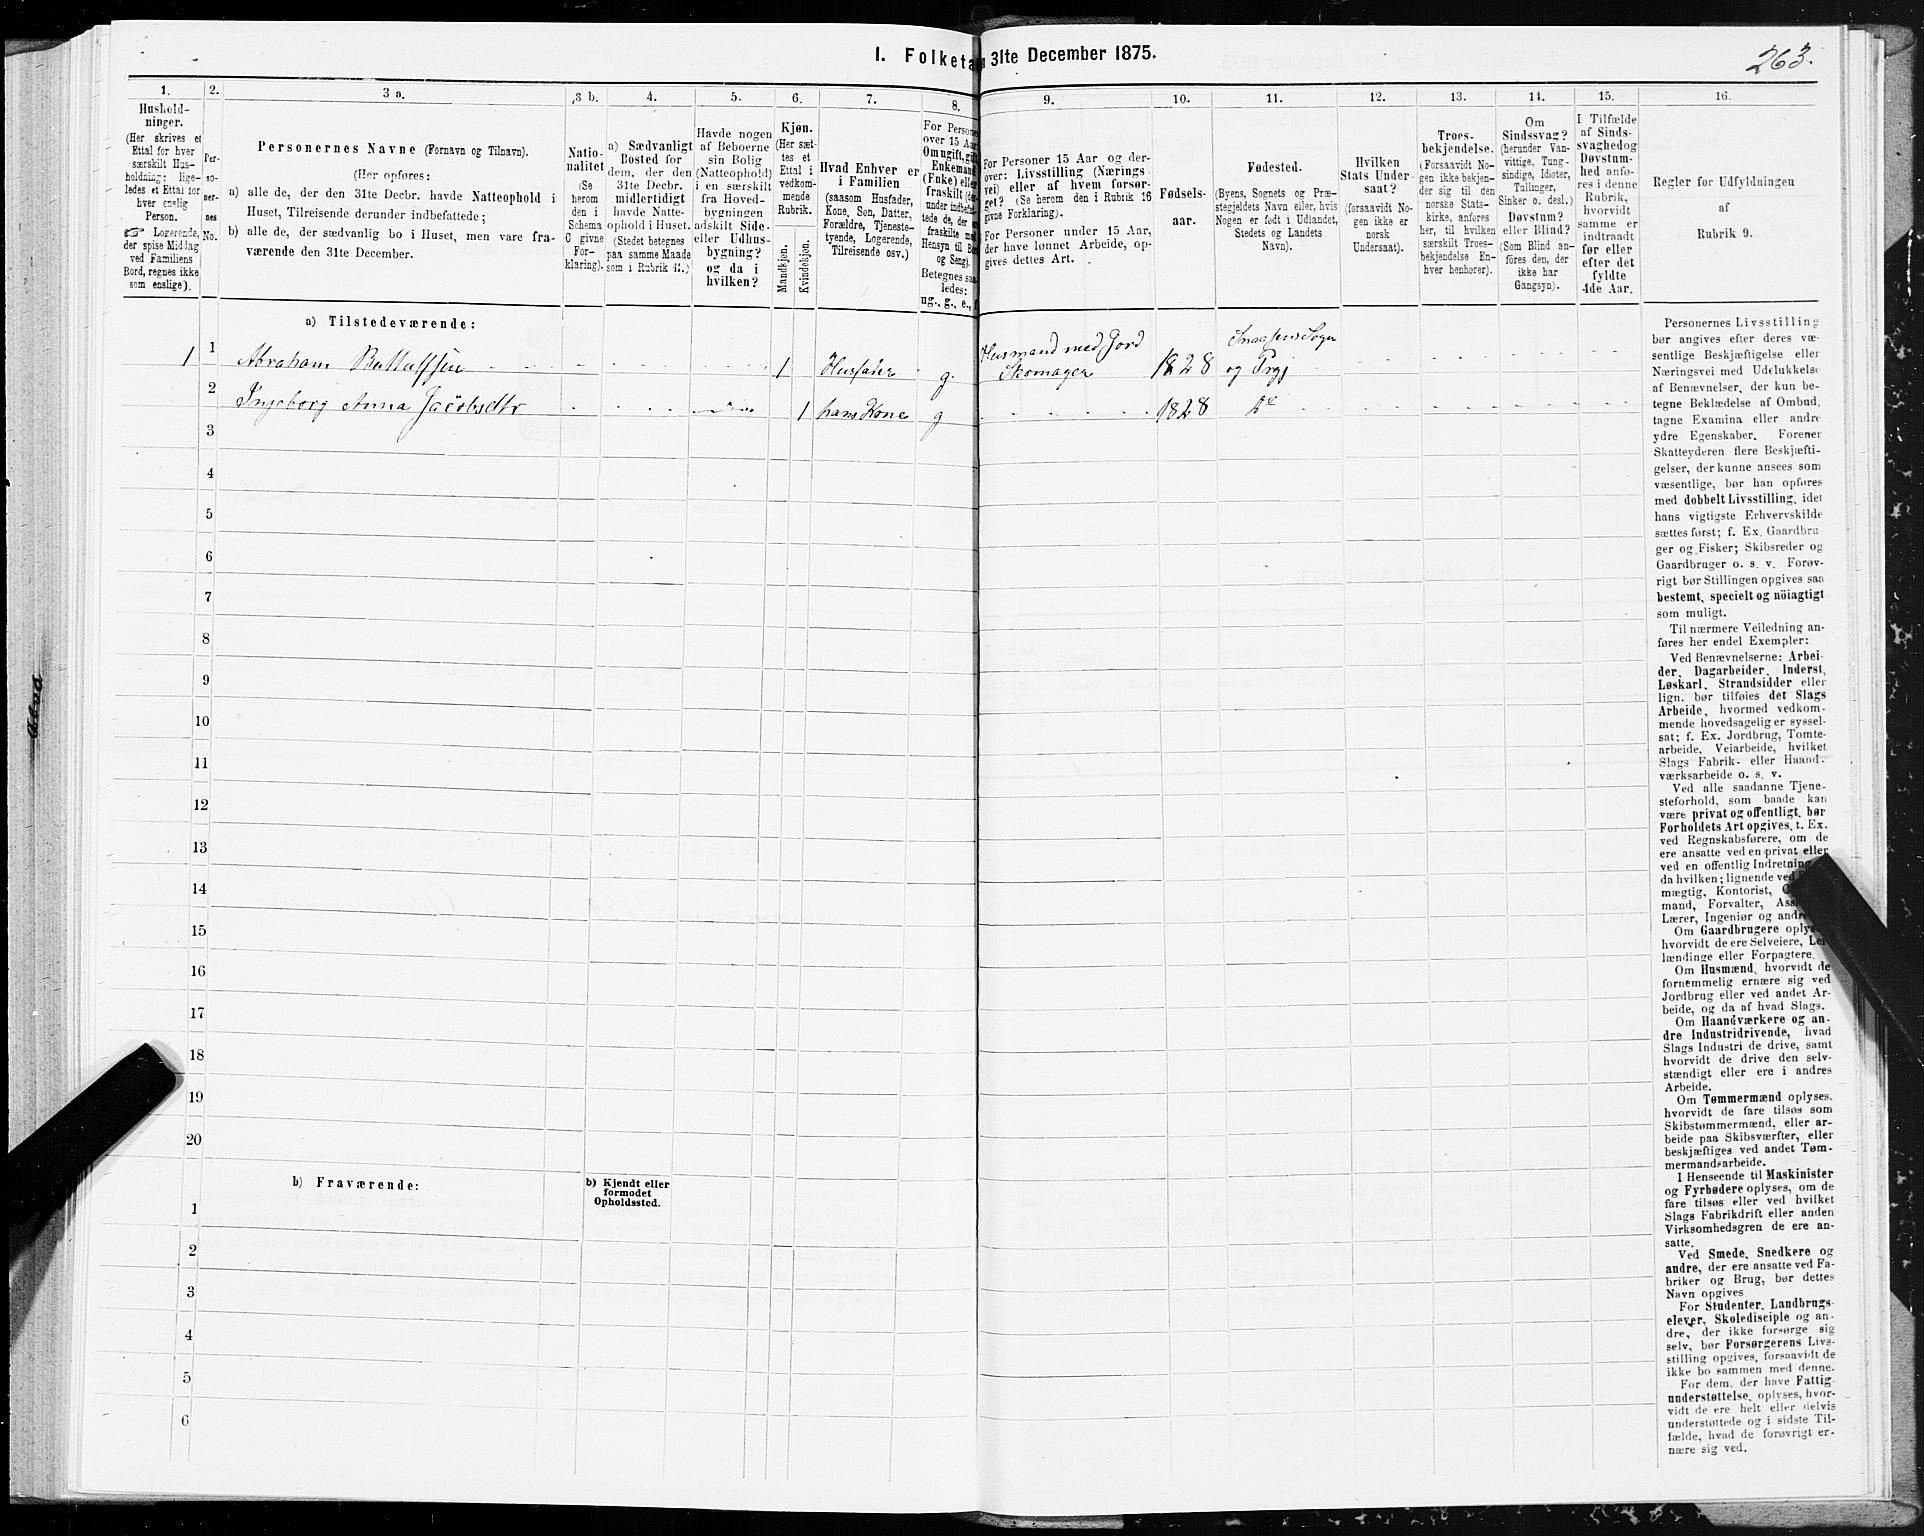 I. Folketa
n 31te December 1875.
263.
1.
2.
3 a.
3 b.
4.
5.
6.
7.
8.
9.
10.
11.
12.
13.
14.
15.
16.
Hushold-
ninger.
(Her skrives et
Ettal for hver
særskilt Hus-
holdning; lige-
ledes et Ettal for
hver enslig
Person.
☞ Logerende,
der spise Middag
ved Familiens
Bord, regnes ikke
som enslige).
Per-
so-
ner-
nes
No.
Personernes Navne (Fornavn og Tilnavn).
(Her opføres:
a) alle de, der den 31te Decbr. havde Natteophold i
Huset, Tilreisende derunder indbefattede;
b) alle de, der sædvanlig bo i Huset, men vare fra-
værende den 31te December.
Natio-
nalitet
(Se
herom
den i
Schema
C givne
For-
klaring).
a) Sædvanligt
Bosted for
dem, der den
31te Decbr.
midlertidigt
havde Natte-
ophold i Huset.
(Stedet betegnes
paa samme Maade
som i Rubrik 11.)
Havde nogen
af Beboerne
sin Bolig
(Natteophold)
i en særskilt
fra Hoved-
bygningen
adskilt Side-
eller Udhus-
bygning?
og da i
hvilken?
Kjøn.
(Her sæt-
tes et
Ettal i
vedkom-
mende
Rubrik.
Mandkjøn.
Kvindekjøn.
Hvad Enhver er
i Familien
(saasom Husfader,
Kone, Søn, Datter,
Forældre, Tjeneste-
tyende, Logerende,
Tilreisende osv.)
For Persone
over 15 Aar
Om ugift, gift,
Enkemand
(Enke) eller
fraskilt (der-
under indbefat-
tede de, der
fraskilte med
Hensyn til Bo
og Seng).
Betegnes saa-
ledes:
ug., g., e., f
For Personer 15 Aar og der-
over: Livsstilling (Nærings
vei) eller af hvem forsør-
get? (Se herom den i Rubrik 16
givne Forklaring).
For Personer under 15 Aar,
der have lønnet Arbeide, op-
gives dettes Art.
Fødsels-
aar.
Fødested.
(Byens, Sognets og Præ-
stegjeldets Navn eller, hvis
Nogen er født i Udlandet,
Stedets og Landets
Navn).
Hvilken
Stats Under-
saat?
(forsaavidt No-
gen ikke er
norsk
Undersaat).
Troes-
bekjendelse.
(Forsaavidt No-
gen ikke bekjen-
der sig til den
norske Stats-
kirke, anføres
her, til hvilken
særskilt Troes-
bekjendelse En-
hver henhører).
Om
Sindssvag?
(herunder Van-
vittige, Tung-
sindige, Idioter,
Tullinger,
Sinker o. desl.)
Døvstum?
eller Blind?
(Som Blind an-
føres den, der
ikke har
Gangsyn).
I Tilfælde
af Sinds-
svaghed og
Døvstum-
hed anfø-
res i denne
Rubrik,
hvorvidt
samme er
indtraadt
før eller
efter det
fyldte
4de Aar.
Regler for Udfyldningen
af
Rubrik 9.
a) Tilstedeværende:
1 1 Abraham 1 Husfader g. Husmand med Jord Skomager 1828 Snaasens Sogn og Prgj
2 Ingeborg Anna Jacobsdtr 1 hans Kone g 1828 do
3
4
5
6
7
8
9
10
11
12
13
14
15
16
17
18
19
20
b) Fraværende:
b) Kjendt eller
formodet
Opholdssted.
1
2
3
4
5
6
Personernes Livsstilling
bør angives efter deres væ-
sentlige Beskjæftigelse eller
Næringsvei med Udelukkelse
af Benævnelser, der kun be-
tegne Beklædelse af Ombud,
tagne Examina eller andre
ydre Egenskaber. Forener
Skatteyderen flere Beskjæfti-
gelser, der kunne ansees som
væsentlige, bør han opføres
med dobbelt Livsstilling, idet
hans vigtigste Erhvervskilde
sættes først; f. Ex. Gaardbru-
ger og Fisker; Skibsreder og
Gaardbruger o. s. v. Forøv-
rigt bør Stillingen opgives saa
bestemt, specielt og nöiagtigt
som muligt.
Til nærmere Veiledning an-
føres her endel Exempler:
Ved Benævnelserne: Arbei-
der, Dagarbeider, Inderst,
Løskarl, Strandsidder eller
lign. bør tilføies det Slags
Arbeide, hvormed vedkom-
mende hovedsagelig er syssel-
sat; f. Ex. Jordbrug, Tomte-
arbeide, Veiarbeide, hvilket
Slags Fabrik- eller Haand-
værksarbeide o. s. v.
Ved alle saadanne Tjene-
steforhold, som baade kan
være privat og offentligt, bør
Forholdets Art opgives, t. Ex.
ved Regnskabsførere, om de
ere ansatte ved en privat eller
ved en offentlig Indretning
da hvilken; lignende ved
mægtig, Kontorist,
mand, Forvalter, Ass
Lærer, Ingeniør og andre
Om Gaardbrugere oply
hvorvidt de ere Selveiere, Lei
lændinge eller Forpagtere.
Om Husmænd, hvorvidt de
fornemmelig ernære sig ved
Jordbrug eller ved andet Ar-
beide, og da af hvad Slags.
Om Haandværkere og an-
dre Industridrivende, hvad
Slags Industri de drive, samt
hvorvidt de drive den selv-
stændigt eller ere i andres
Arbeide.
Om Tømmermænd oplyses,
hvorvidt de fare tilsøs som
Skibstømmermænd, eller ar-
beide paa Skibsværfter, eller
beskjæftiges ved andet Tøm-
mermandsarbeide.
I Henseende til Maskinister
og Fyrbødere oplyses, om de
fare tilsøs eller ved hvilket
Slags Fabrikdrift eller anden
Virksomhedsgren de ere an-
satte.
Ved Smede, Snedkere og
andre, der ere ansatte ved Fa-
briker og Brug, bør dettes
Navn opgives
For Studenter, Landbrugs-
elever, Skoledisciple og an-
dre, der ikke forsørge sig
selv, bør Forsørgerens Livs-
stilling opgives, forsaavidt de
ikke bo sammen med denne.
For dem, der have Fattig-
understøttelse, oplyses, hvor-
vidt de ere helt eller delvis
understøttede og i sidste Til-
fælde, hvad de forøvrigt er-
nære sig ved.